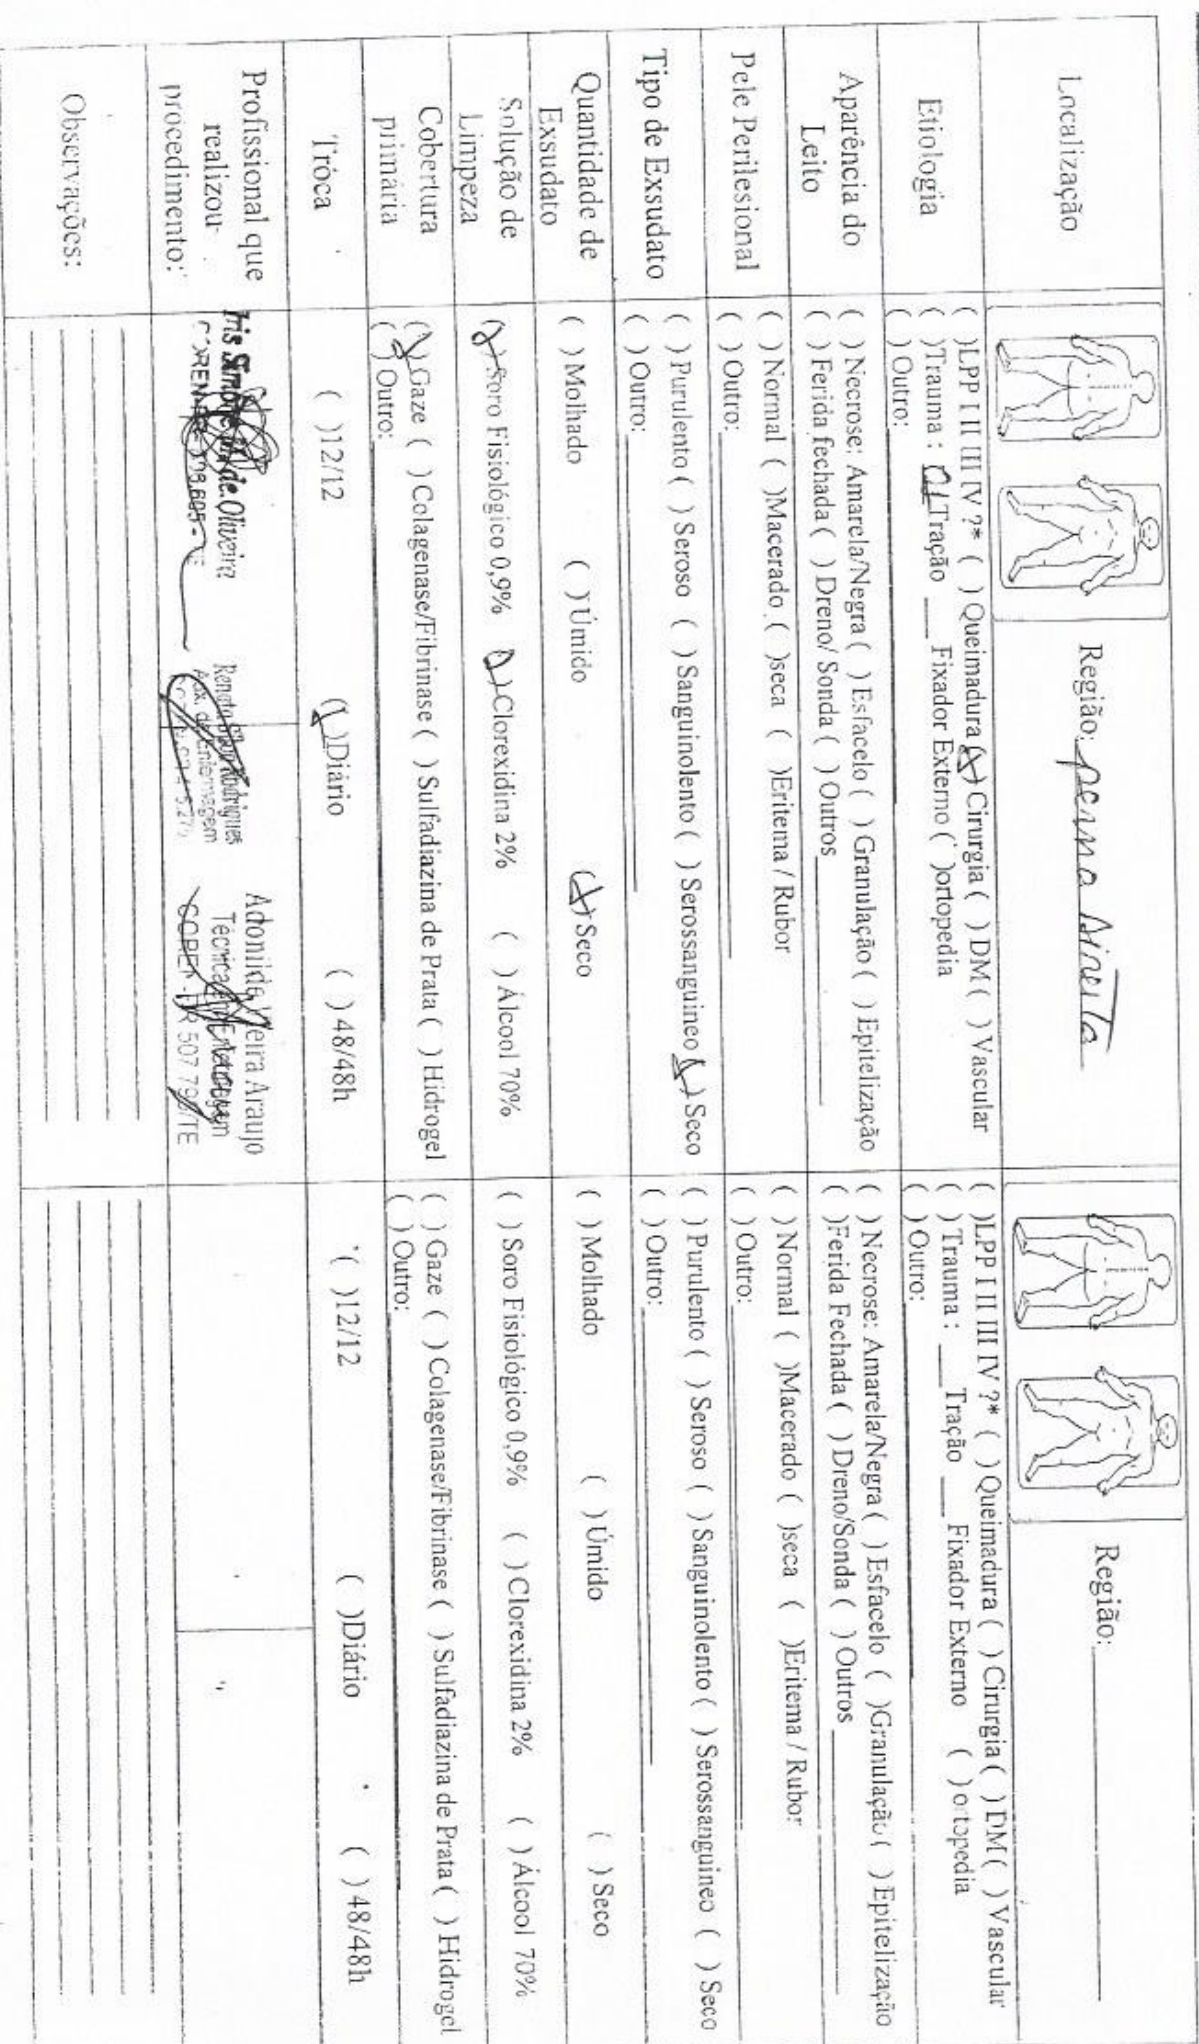 Localização
Região: perna direita
Região:
Etiologia
( )LPP I II III IV ?* ( ) Queimadura (x) Cirurgia ( ) DM ( ) Vascular
( )Trauma : 01 Tração ___ Fixador Externo ( )ortopedia
( ) Outro:
( )LPP I II III IV ?* ( ) Queimadura ( ) Cirurgia ( ) DM ( ) Vascular
( ) Trauma : ___ Tração ___ Fixador Externo ( ) ortopedia
( ) Outro:
Aparência do
Leito
( ) Necrose: Amarela/Negra ( ) Esfacelo ( ) Granulação ( ) Epitelização
( ) Ferida fechada ( ) Dreno/ Sonda ( ) Outros
( ) Necrose: Amarela/Negra ( ) Esfacelo ( )Granulação ( ) Epitelização
( )Ferida Fechada ( ) Dreno/Sonda ( ) Outros
Pele Perilesional
( ) Normal ( )Macerado ( )seca ( )Eritema / Rubor
( ) Outro:
( ) Normal ( )Macerado ( )seca ( )Eritema / Rubor
( ) Outro:
Tipo de Exsudato
( ) Purulento ( ) Seroso ( ) Sanguinolento ( ) Serossanguineo (x) Seco
( ) Outro:
( ) Purulento ( ) Seroso ( ) Sanguinolento ( ) Serossanguineo ( ) Seco
( ) Outro:
Quantidade de
Exsudato
( ) Molhado ( ) Úmido (x) Seco
( ) Molhado ( ) Úmido ( ) Seco
Solução de
Limpeza
(x) Soro Fisiológico 0,9% (x) Clorexidina 2% ( ) Álcool 70%
( ) Soro Fisiológico 0,9% ( ) Clorexidina 2% ( ) Álcool 70%
Cobertura
primária
(x) Gaze ( ) Colagenase/Fibrinase ( ) Sulfadiazina de Prata ( ) Hidrogel
( ) Outro:
( ) Gaze ( ) Colagenase/Fibrinase ( ) Sulfadiazina de Prata ( ) Hidrogel
( ) Outro:
Tróca
( )12/12 (x)Diário ( ) 48/48h
( )12/12 ( )Diário ( ) 48/48h
Profissional que
realizou
procedimento:
de Oliveira
Rodrigues
Aux. de Enfermagem
Adonilda Vieira Araujo
Técnica Enfermagem
COREN-PR 507 796/TE
Observações: